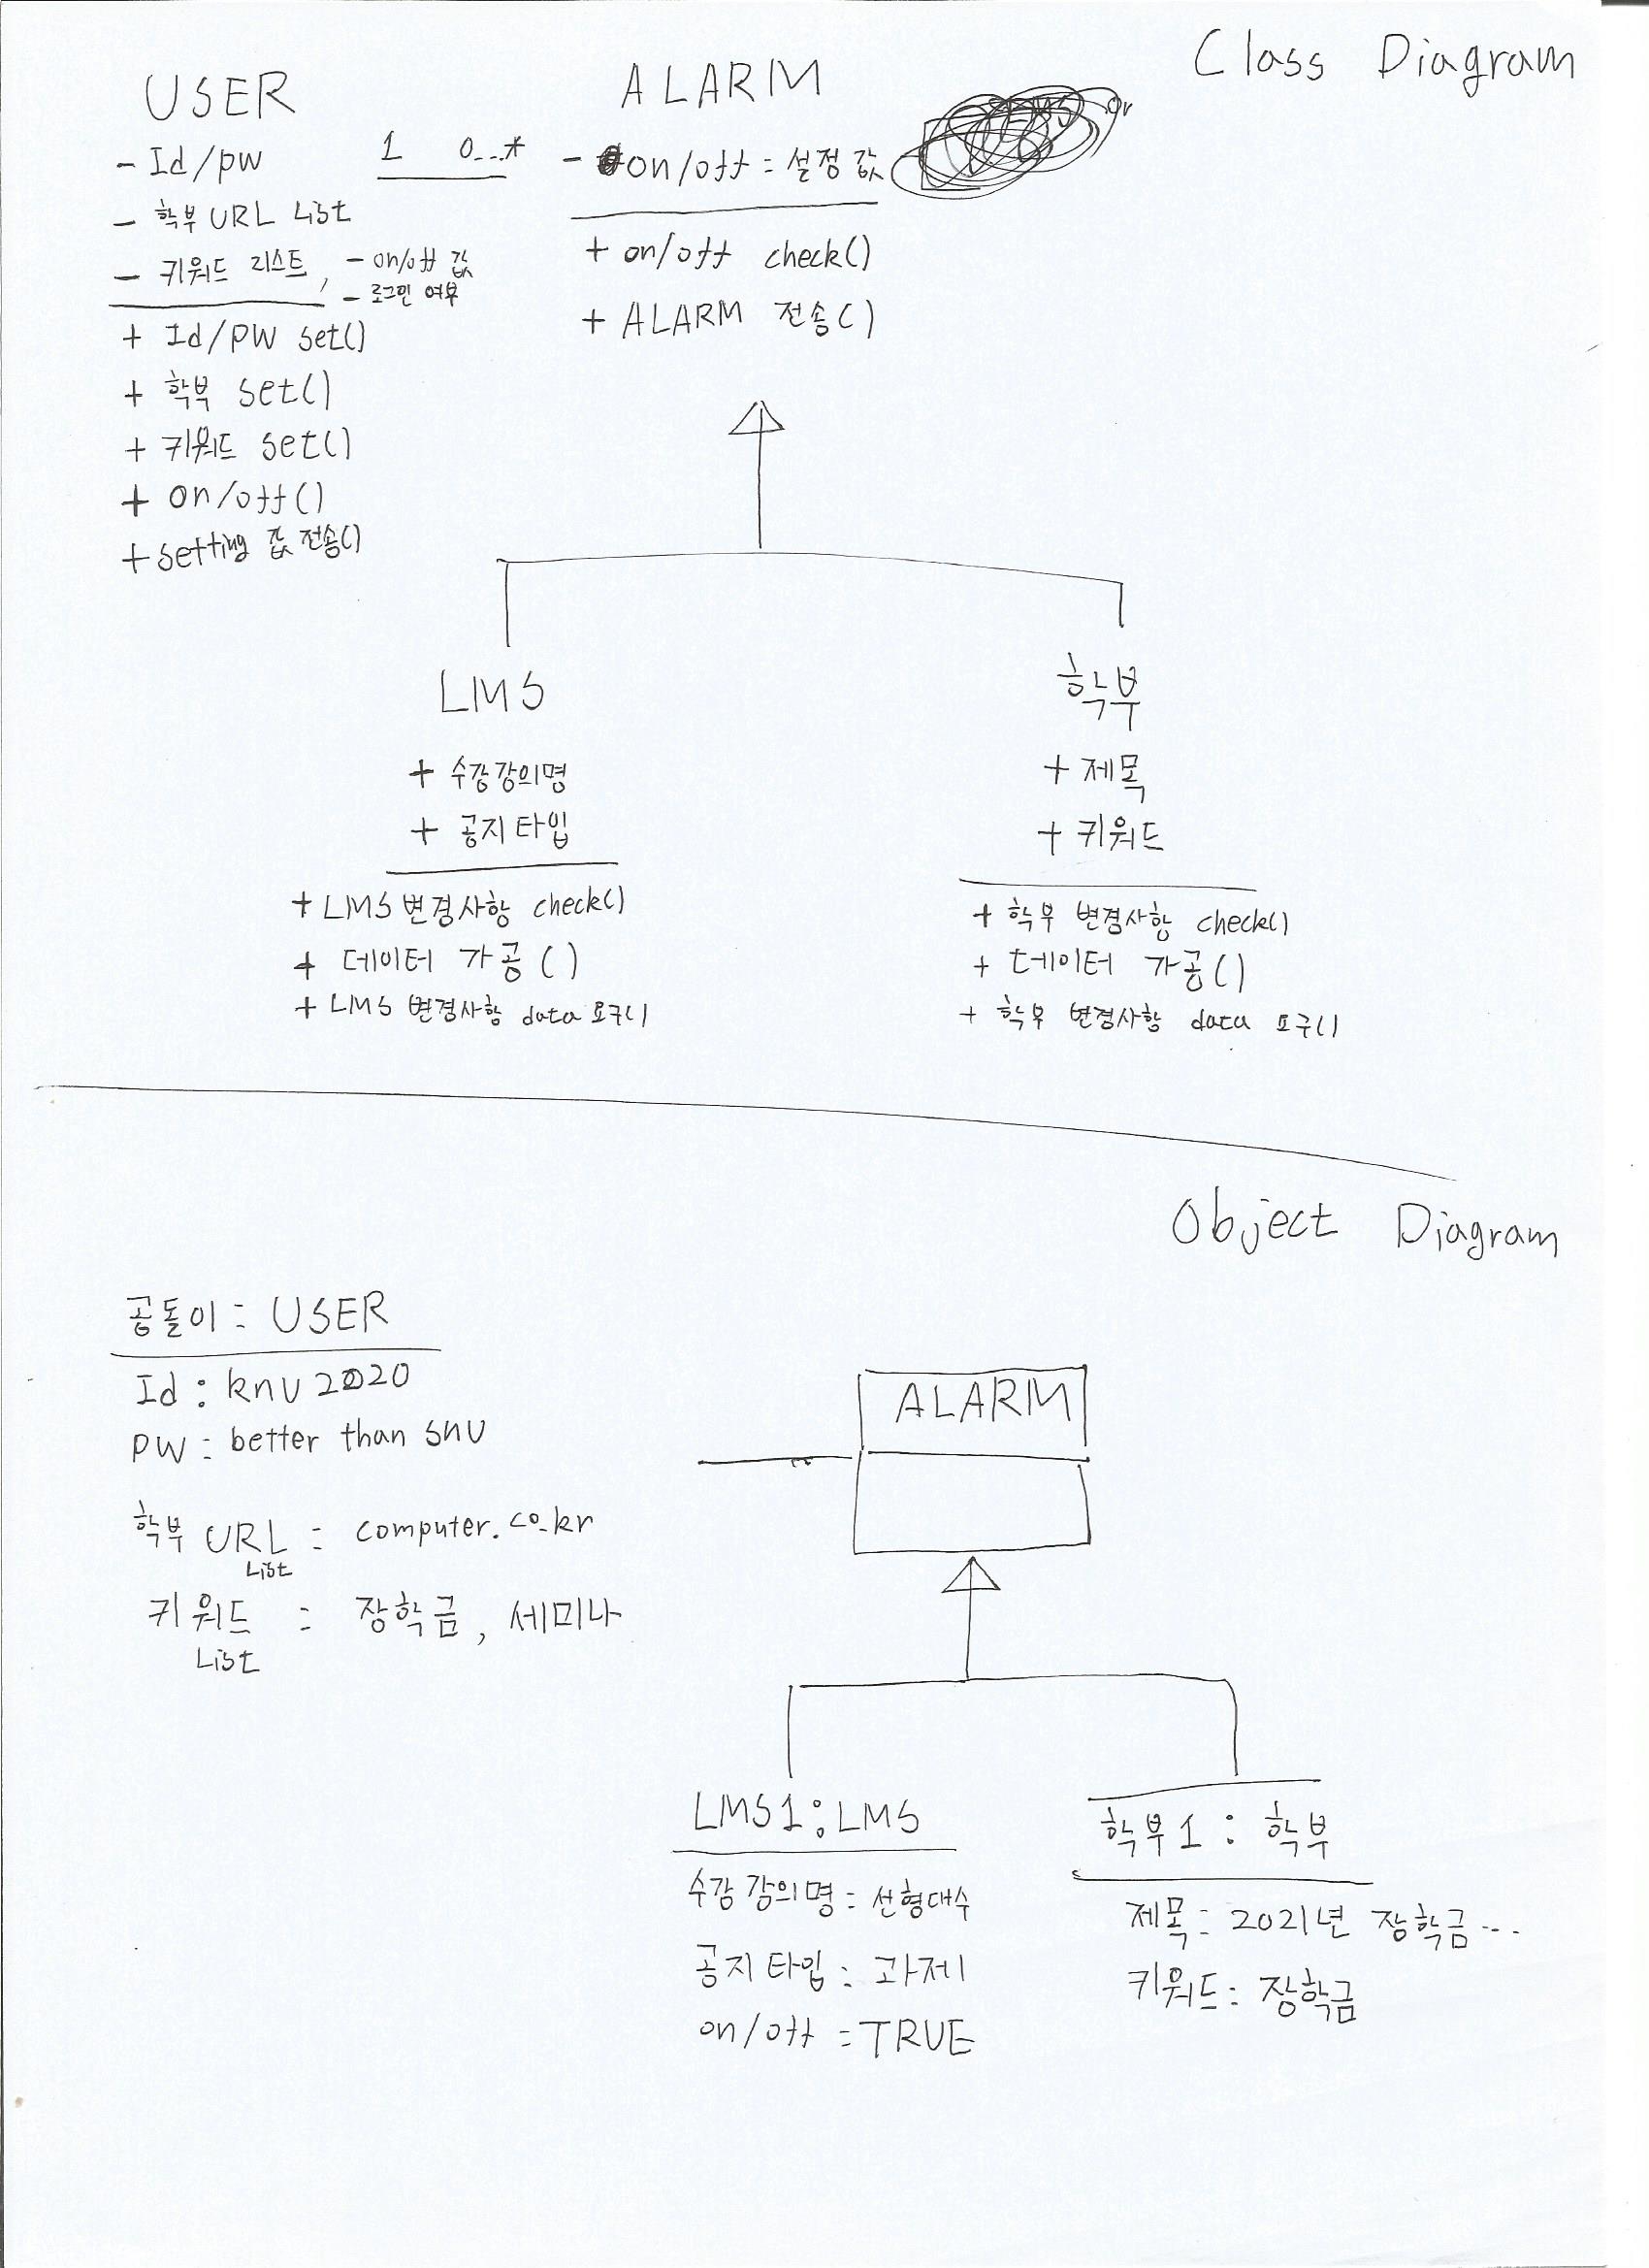 Class Diagram
USER
- Id/pw
- 학부 URL List
- 키워드 리스트, - on/off 값
- 로그인 여부
+ Id/PW set()
+ 학부 set()
+ 키워드 set()
+ on/off()
+ setting 값 전송()
1 0...*
ALARM
- on/off = 설정 값
+ on/off check()
+ ALARM 전송()
LMS
+ 수강강의명
+ 공지타입
+ LMS 변경사항 check()
+ 데이터 가공()
+ LMS 변경사항 data 요구()
학부
+ 제목
+ 키워드
+ 학부 변경사항 check()
+ 데이터 가공()
+ 학부 변경사항 data 요구()
Object Diagram
공돌이 : USER
Id : knu2020
PW : better than snu
학부 URL List = computer.co.kr
키워드 List : 장학금, 세미나
ALARM
LMS1 : LMS
수강 강의명 = 선형대수
공지타입 : 과제
on/off = TRUE
학부1 : 학부
제목 = 2021년 장학금...
키워드 : 장학금